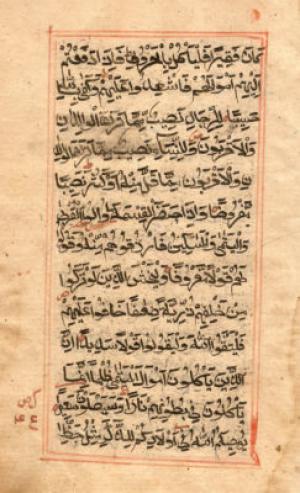 كان فقيرا فلياكل بالمعروف فاذا دفعتم
اليهم اموالهم فاشهدوا عليهم وكفى بالله
حسيبا للرجال نصيب مما ترك الوالدان
والاقربون وللنساء نصيب مما ترك الوالد
ن والاقربون مما قل منه او كثر نصيبا
مفروضا واذا حضر القسمة اولوا القربى
واليتمى والمسكين فارزقوهم منه وقولوا
لهم قولا معروفا وليخش الذين لو تركوا
من خلفهم ذرية ضعفا خافوا عليهم
فليتقوا الله وليقولوا قولا سديدا ان
الذين ياكلون اموال اليتمى ظلما انما
ياكلون فى بطونهم نارا وسيصلون سعيرا
يوصيكم الله فى اولادكم للذكر مثل حظ